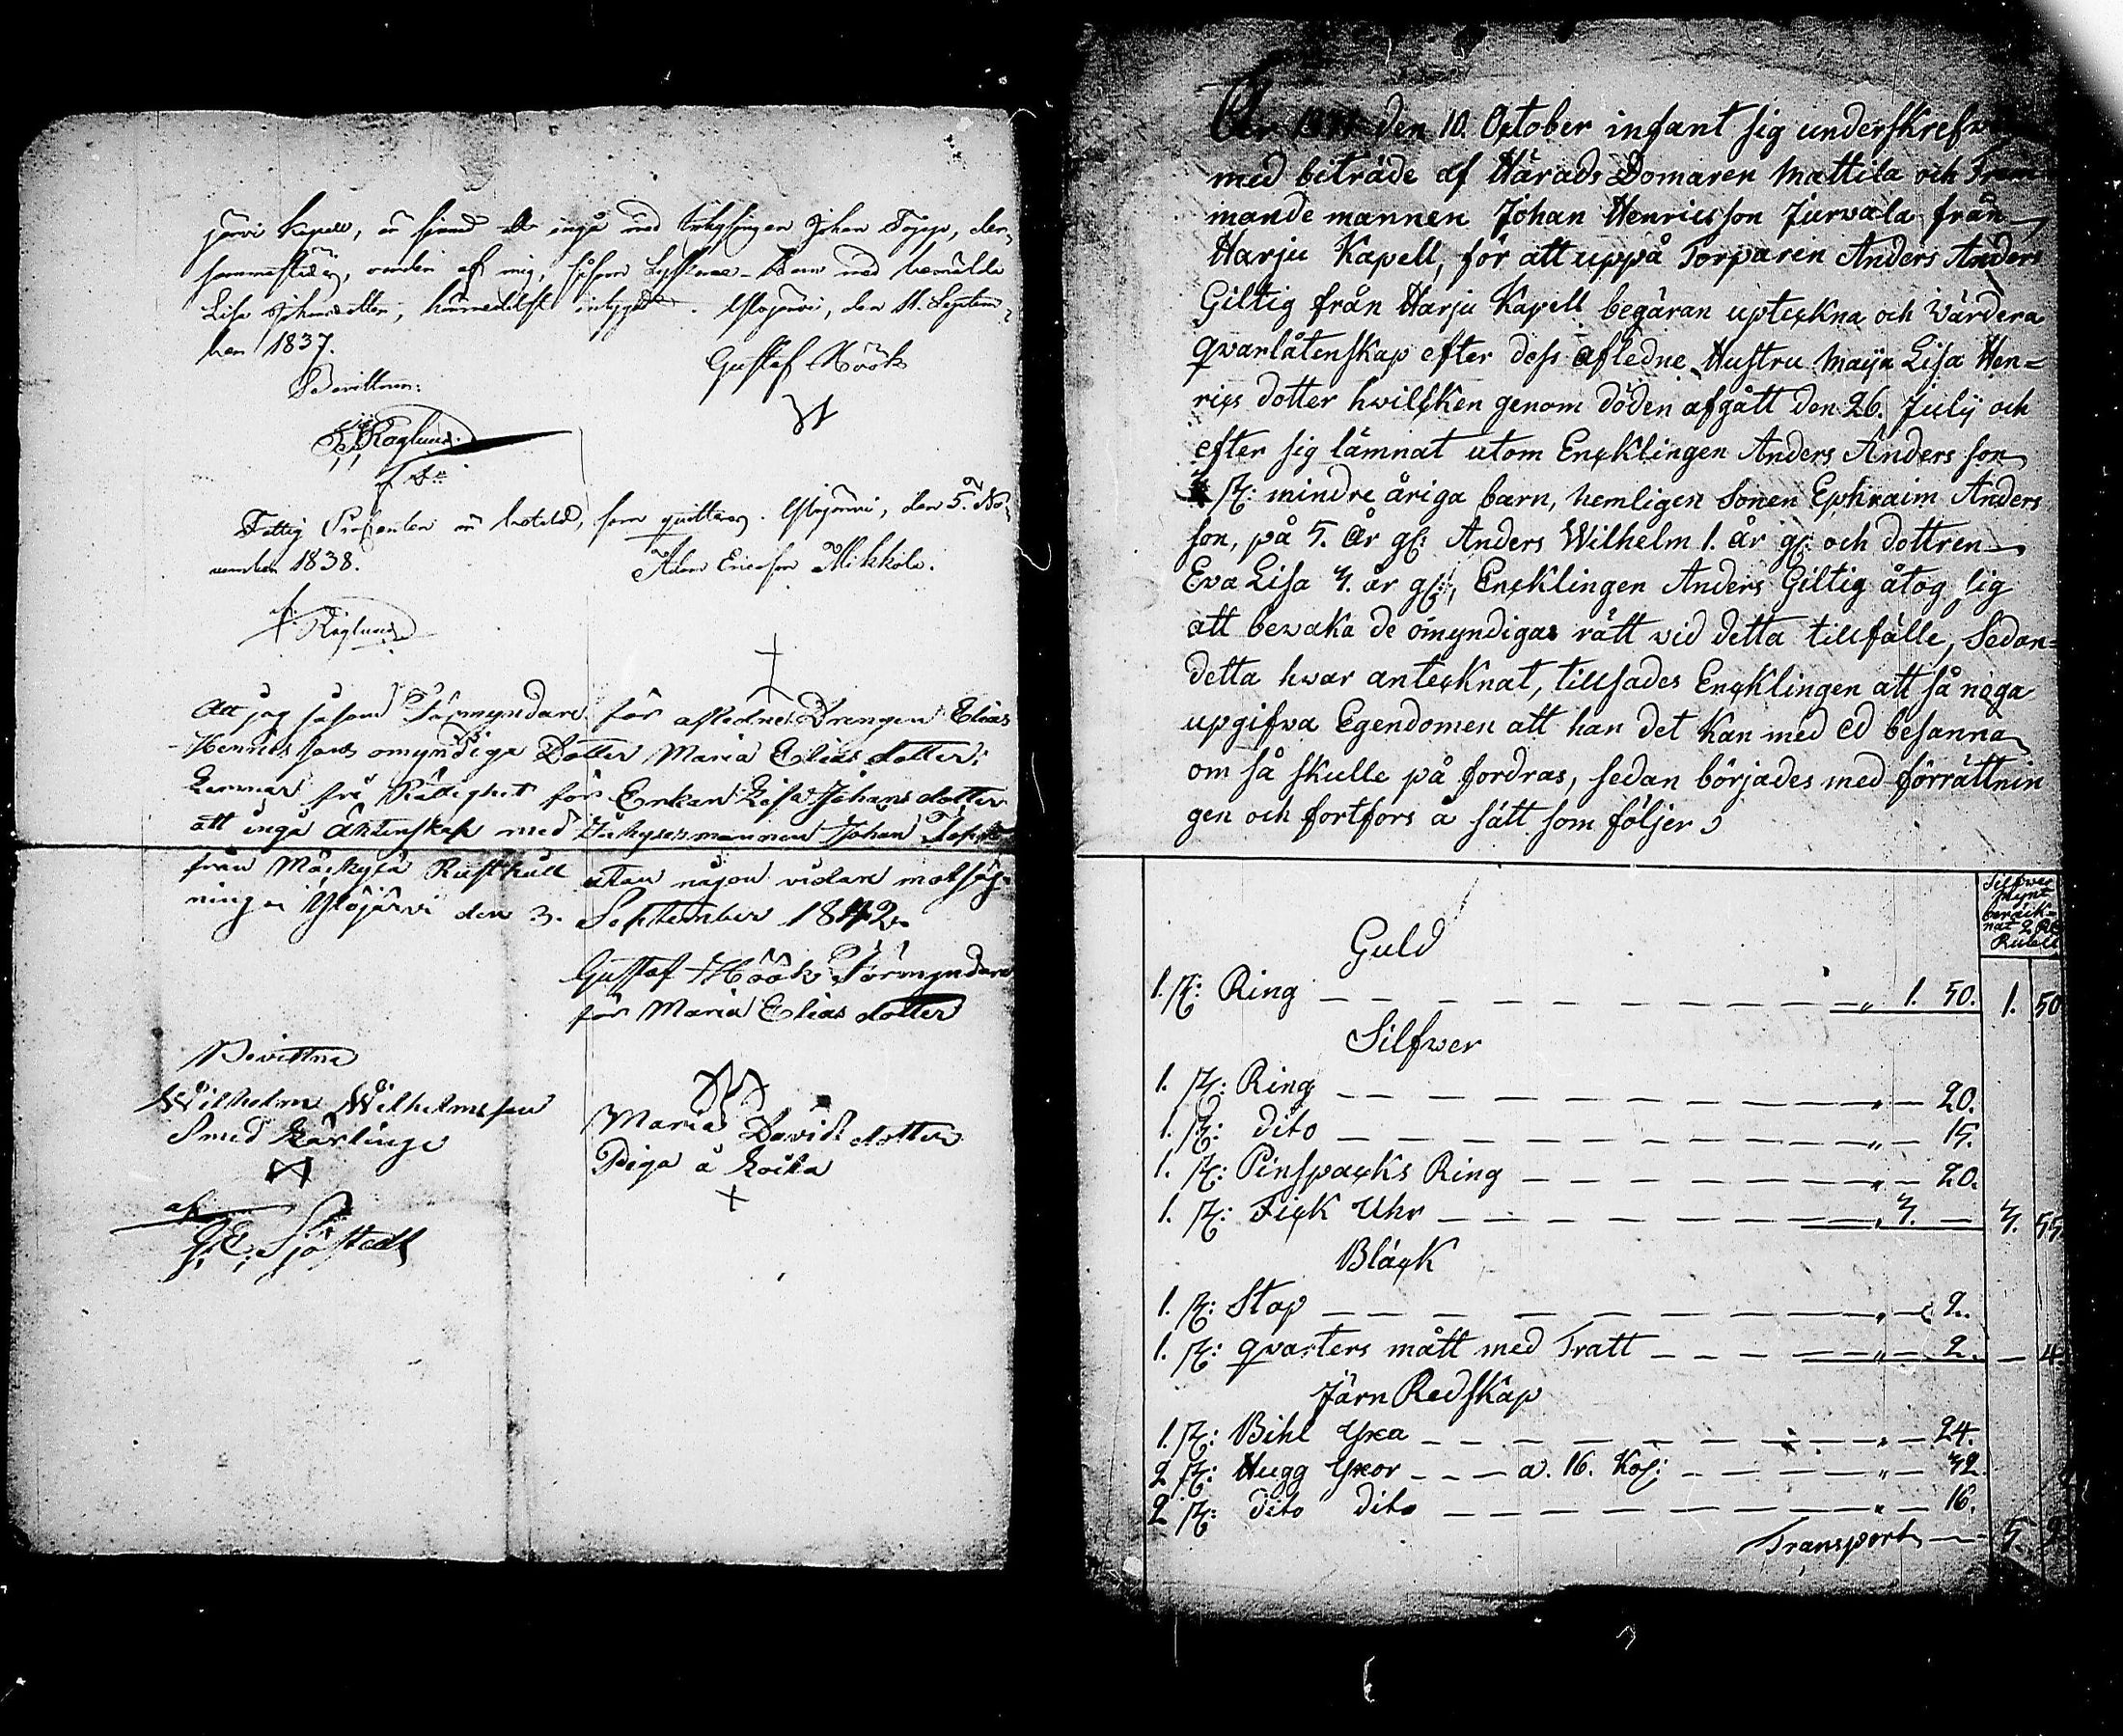 järvi Kapell, är sinnad att ingå med Inhysingen Johan Topp, der
sammastädes, varder af mig, såsom
Lisa Johansdotter, härmedelst intygadt. Ylöjärvi, den 11. Septem-
ber 1837.
Gustaf Höök
Bevittnar:
Roglund
Fattig Procenten är betald, som qvitteras. Ylöjärvi, den 5. No-
vember 1838.
Adam Ericsson Mikkola.
Roglund
Att jag såsom Förmyndare för afledne Drengen Elias
Henricssons omyndiga Dotter Maria Elias dotter;
Lemnar fri Rättighet för Enkan Lisa Johans dotter
att ingå Äktenskap med Inhyses mannen Johan
från Mäkylä Rusthåll utan någon vidare motsäg-
ning i Ylöjärvi den 3. September 1842.
Gustaf Höök Förmyndare
för Maria Elias dotter
Bevittna
Wilhelm Wilhelmsson
Smed Kärlinge
Maria Davids dotter
Piga å Koita
af
J. E. Sjöstedt
År den 10. October infant sig underskrefw
med beträde af Härads Domaren Mattila och Trem
mande mannen Johan Henricsson Jurvala från
Harju Kapell, för att uppå Torparen Anders Anders
Giltig från Harju Kapell begäran uptekna och Värdera
qvarlåtenskap efter dess afledne Hustru Maija Lisa Hen=
rics dotter hwilken genom döden afgått den 26. July och
efter sig lämnat utom Encklingen Anders Andersson
3 st: mindre åriga barn, nemligen Sonen Ephraim Anders
son, på 5. År gl: Anders Wilhelm 1. år gl: och dottren
Eva Lisa 3. år gl:, Encklingen Anders Giltig åtog sig
att bevaka de omyndigas rätt vid detta tillfälle, Sedan=
detta hwar antecknat, tillsades Encklingen att så noga
upgifva Egendomen att han det Kan med ed besanna
om så skulle på fordras, sedan börjades med förrättnin
gen och fortfors å sätt som följer
Silfwer
Mynt
beräck-
nat
Rubell
Guld
1. st: Ring — — — „ 1. 50. 1. 50
Silfwer
1. st: Ring — — — „ — 20.
1. st: dito — — — „ — 15.
1. st: Pinspacks Ring — — — „ — 20.
1. st: Fick Uhr — — — „ 3. — 3. 55
Bläck
1. st: Stop — — — „ — 2.
1. st: qvarters mått med Tratt — — — „ — 2. — 4
Järn Redskap
1. st: Bihl Yxa — — — „ — 24.
2 st: Hugg Yxor — — — a. 16. Kop: — — — „ — 32
2 st: dito dito — — — „ — 16.
Transport — 5. 9